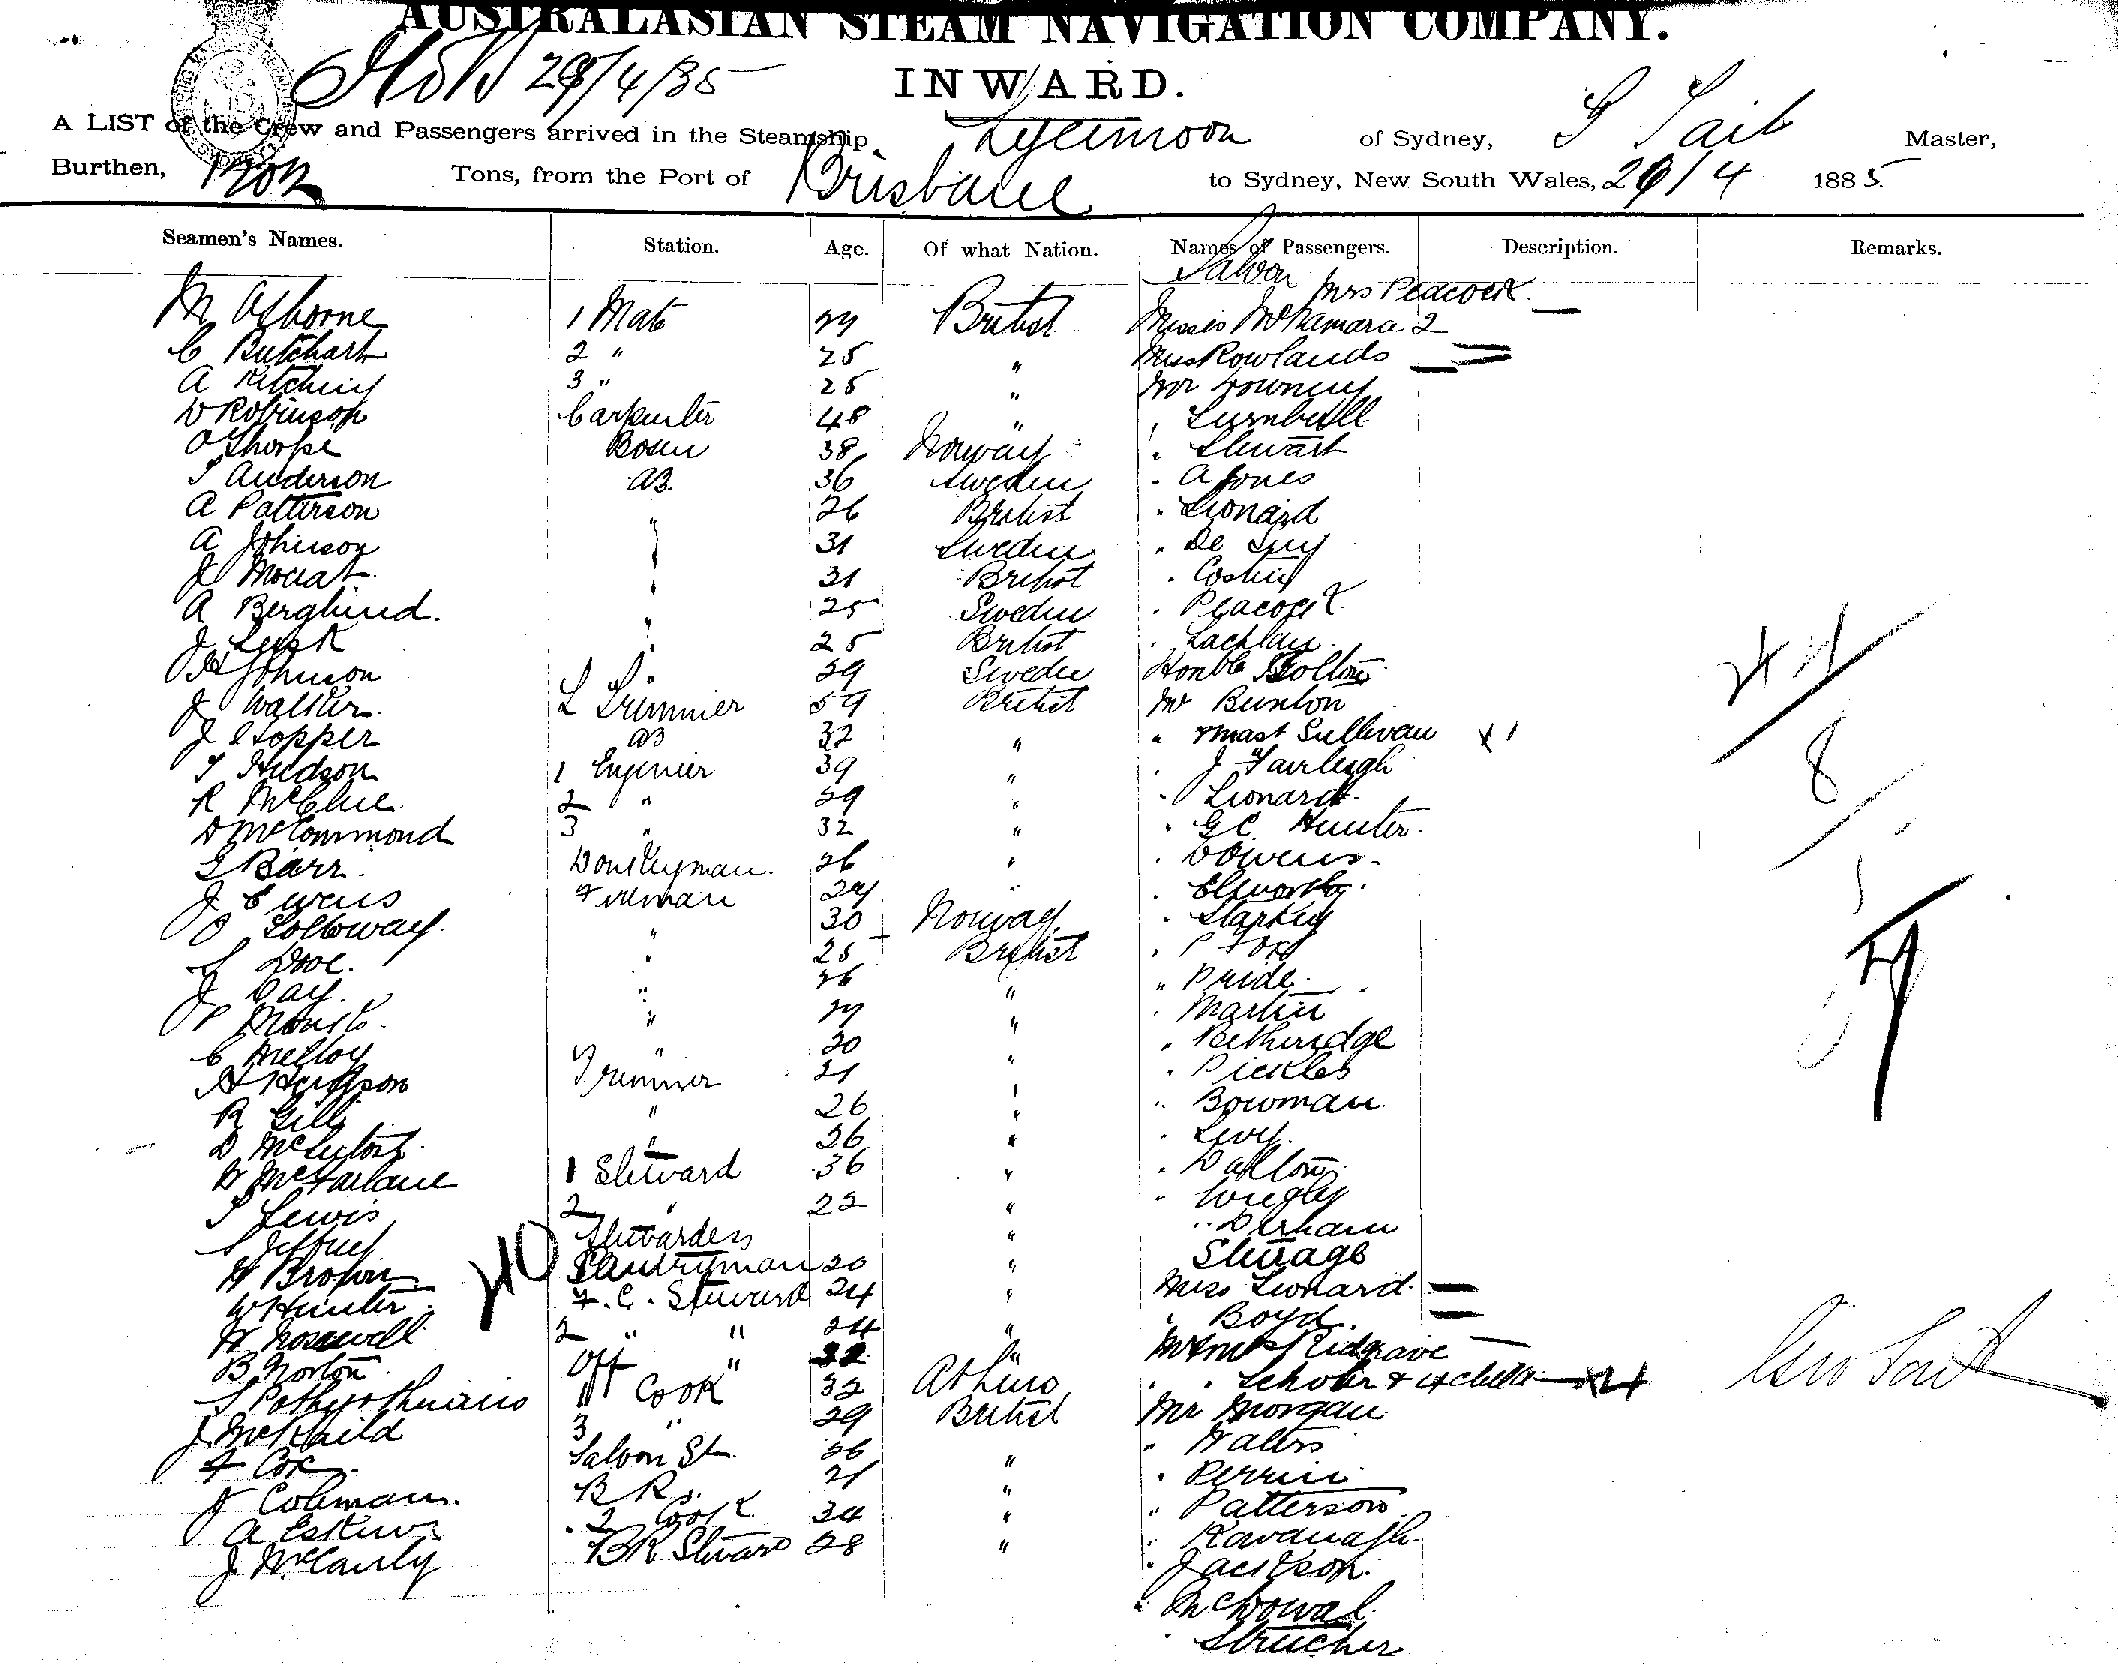 AUSTRALASIAN STEAM NAVIGATION COMPANY.
29/4/85
INWARD.
A LIST of the Crew and Passengers arrived in the Steamship Lyeemoon of Sydney, Tait Master,
Burthen, Tons, from the Port of Brisbane to Sydney, New South Wales, 29/4 1885
Seamen's Names. Station. Age. Of what Nation. Names of Passengers. Description. Remarks.
Saloon
Mrs Peacock
M Osborne 1 Mate British Misses McNamara 2
C Butchart 2 " 25 " Miss Rowlands
A Kitching 3 " 25 " Mr Downing
D Robinson Carpenter 48 " " Turnbull
O Thorpe Bosun 38 Norway " Stewart
Anderson AB. 36 Sweden " A Jones
A Patterson " 26 British " Lionard
A Johnson " 31 Sweden " De
J Mouat " 31 British "
A Berglund. " 25 Sweden " Peacock
J Leask " 25 British " Lachlan
Johnson " 29 Sweden Honble
J Walker L Trimmer 59 British Mr Bunton
J Hopper AB 32 " " & Mast Sullivan x 1
T Hudson 1 Engenier 39 " " J Fairleigh
R McClue 2 " 29 " " Lionard
D McCommond 3 " 32 " " G C Hunter.
G Barr Donkeyman 26 " " D Owens
J Ewens Fireman " " Ellworthy.
O Solloway " 30 Norway " Starkey
Dove. " 25 British " P Fox
J Day. " 26 " " Pride
P " " " Martin
C Melloy " 30 " " Betheridge
Trimmer 21 " " Pickles
R Gill " 26 " " Bowman
D McIntosh " 26 " " Levy
McFarlane 1 Steward 36 " " Dalton
Lewis 2 " 22 " " Wregley
Jeffrey Stewardess " " Derham
H Brown Pantryman 20 " Steerage
W Hunter F. C. Steward 24 " Miss Lionard
H Roswell 2 " " 24 " " Boyd
B Norton Off " 32 " Mr & Mrs Ridgrave
Cook 32 Athens " " & 4 children x4
J McKaild 3 " 29 British Mr Morgan
F Cox Saloon St 26 " " Walters
Colman. B R 21 " " Perrin
A Eskew 2 Cook 34 " " Patterson
J McCauly BR Steward 28 " " Kavanagh
" Jackson.
" McDowal
" Strucher
44
8
Geo Tait